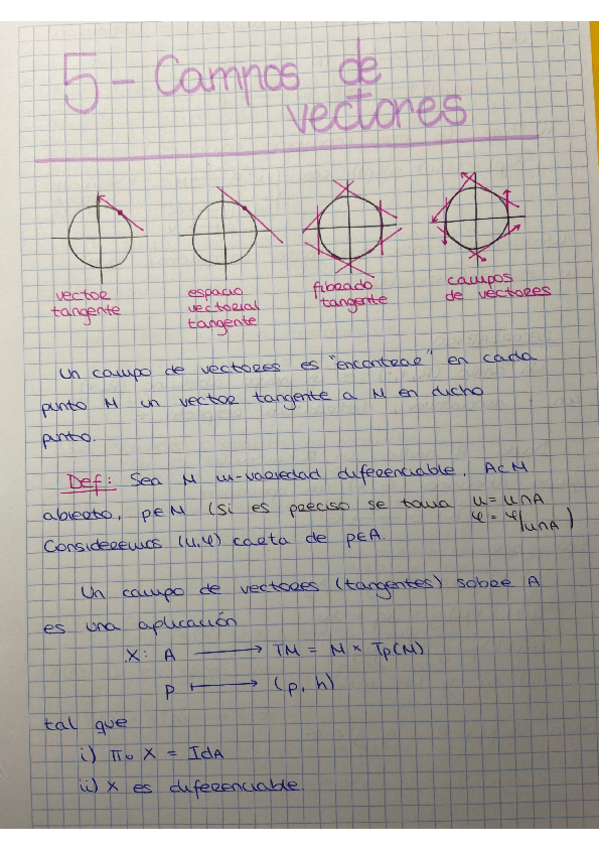 5 - Campos de
vectores
vector
tangente
espacio
vectorial
tangente
fibrado
tangente
campos
de vectores
Un campo de vectores es "encontrar" en cada
punto M un vector tangente a M en dicho
punto.
Def: Sea M m-variedad diferenciable, A⊂M
abierto, p∈M (si es preciso se toma U = U∩A
φ = φ/U∩A )
Consideremos (U,φ) carta de p∈A.
Un campo de vectores (tangentes) sobre A
es una aplicación
X: A ⟶ TM = M × Tp(M)
p ⟼ (p, h)
tal que
i) π∘ X = IdA
ii) X es diferenciable